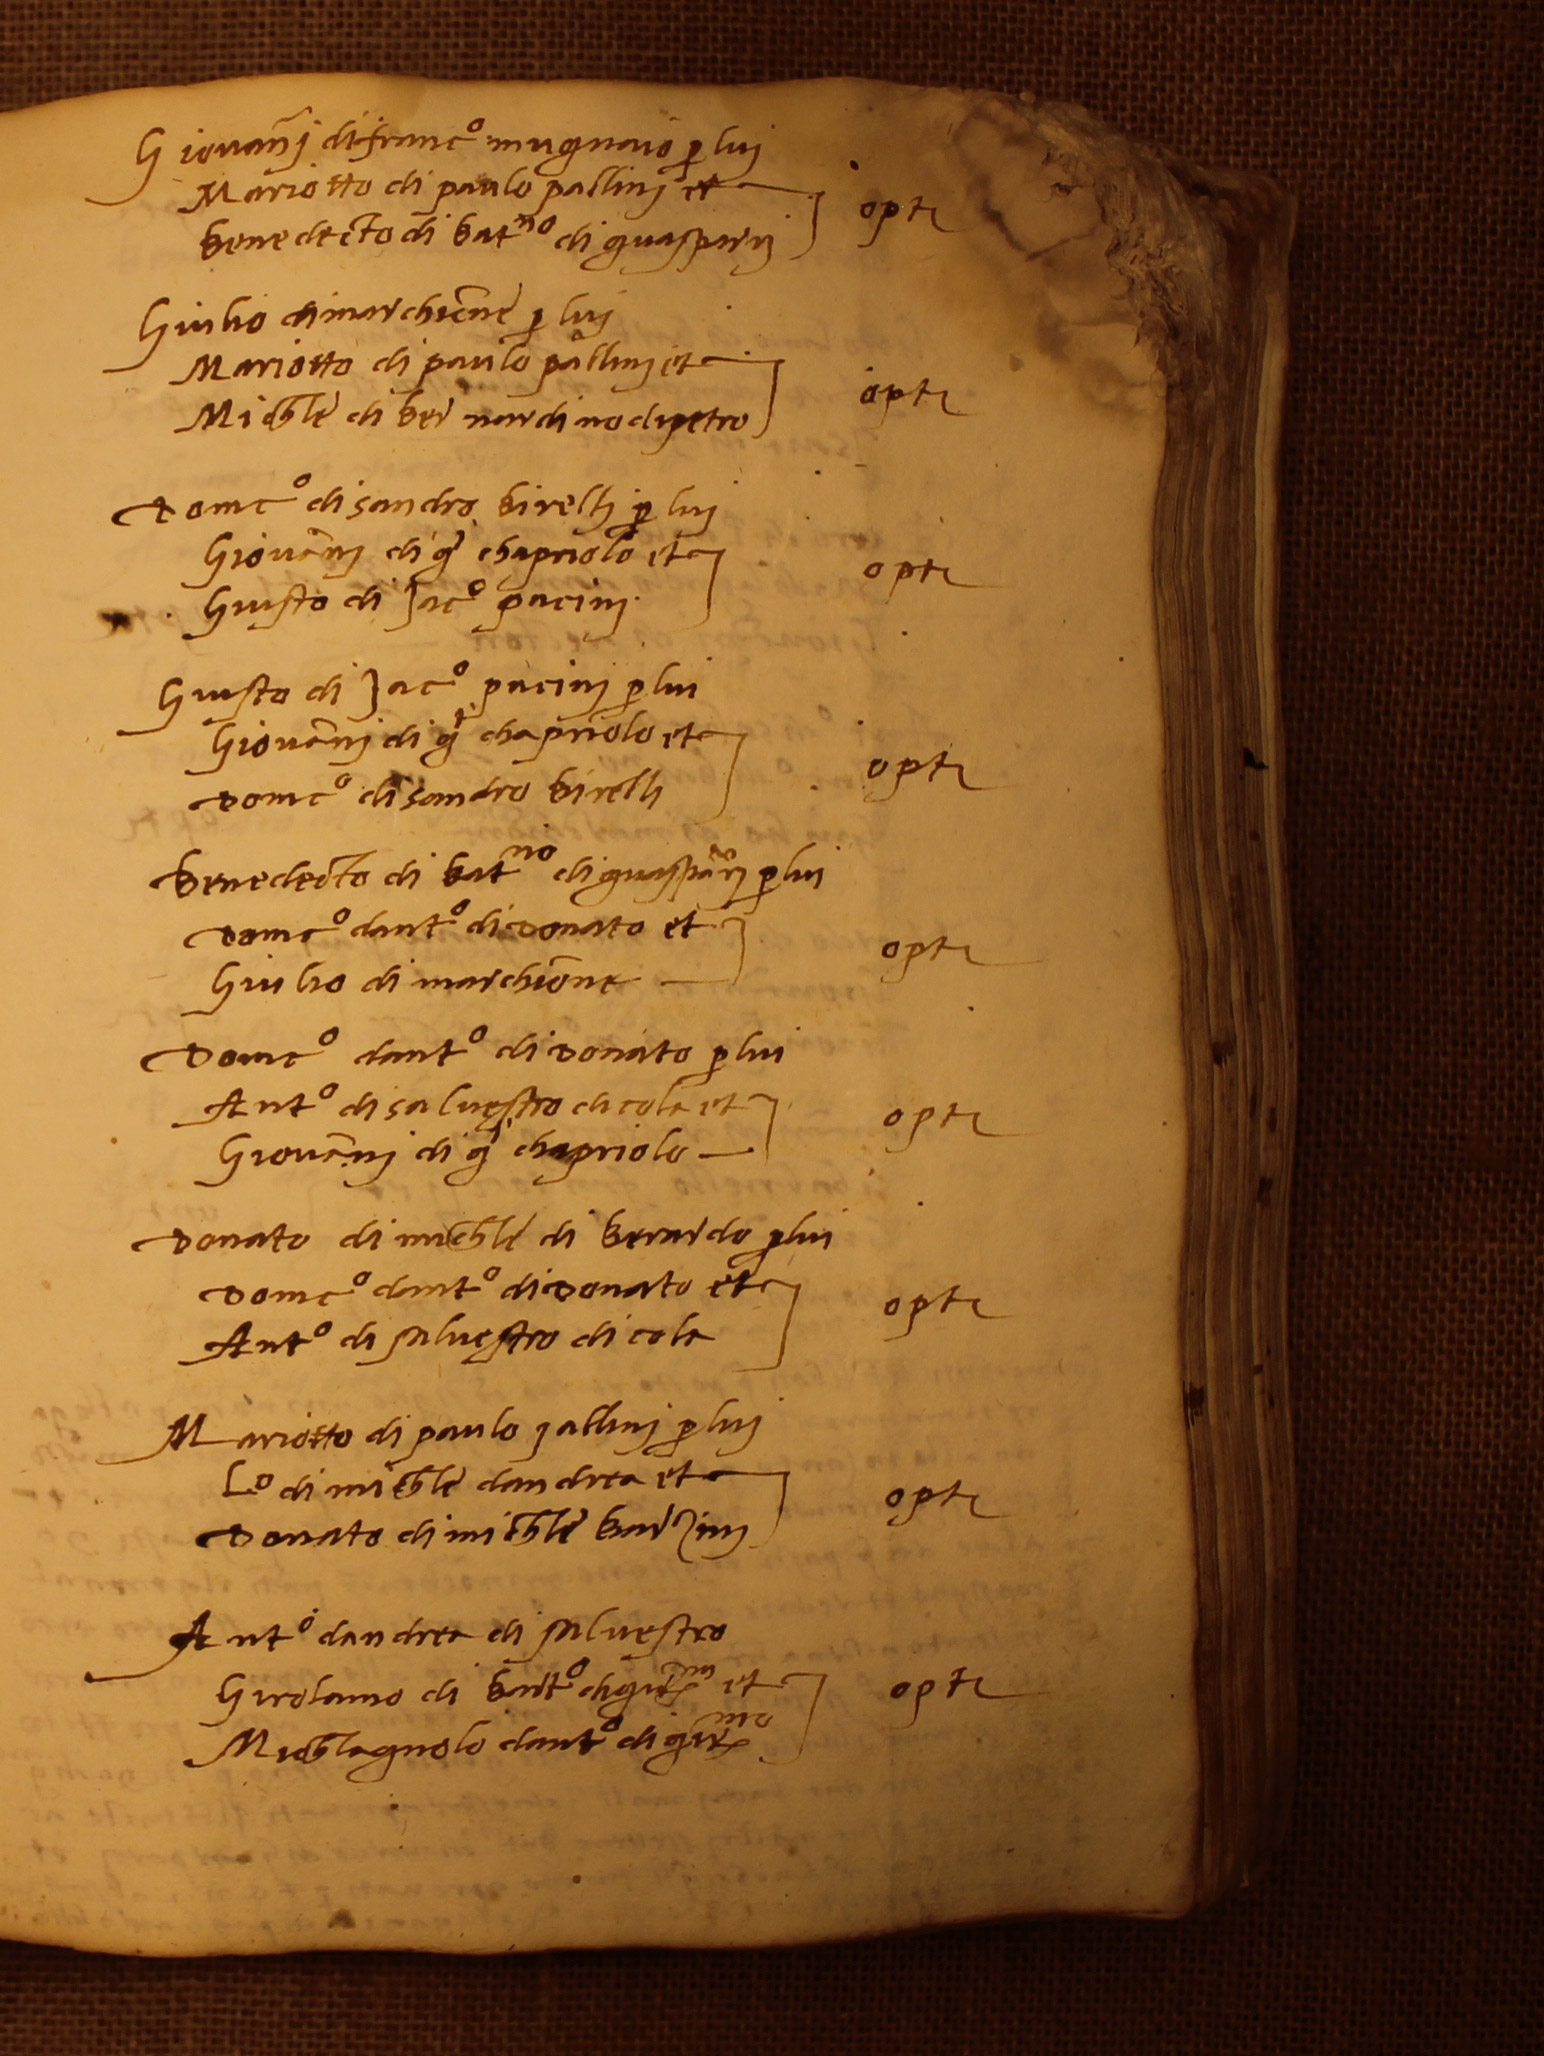 Giovanni di franc° mugnaio p lui
Mariotto di paulo pallinj et
benedecto di bat^no di guasparrj optr
Giulio di marchionne p lui
Mariotto di paulo pallinj et
Michele di bernardino di pietro optr
Domc° di sandro birellj p lui
Giovannj di g° chapriolo et
Giusto di Jac° pacinj optr
Giusto di Jac° pacinj p lui
Giovannj di g° chapriolo et
Domc° di sandro birellj optr
benedecto di bat^no di guasparrj p lui
Domc° dant° di donato et
Giulio di marchionne optr
Domc° dant° di donato p lui
Ant° di salvestro di cola et
Giovannj di g° chapriolo optr
Donato di michele di berardo p lui
Domc° dant° di donato et
Ant° di salvestro di cola optr
Mariotto di paulo pallinj p lui
Lo di michele dandrea et
Donato di michele barzinj optr
Ant° dandrea di salvestro
Girolamo di bart° di et
Michelagnolo dant° di optr